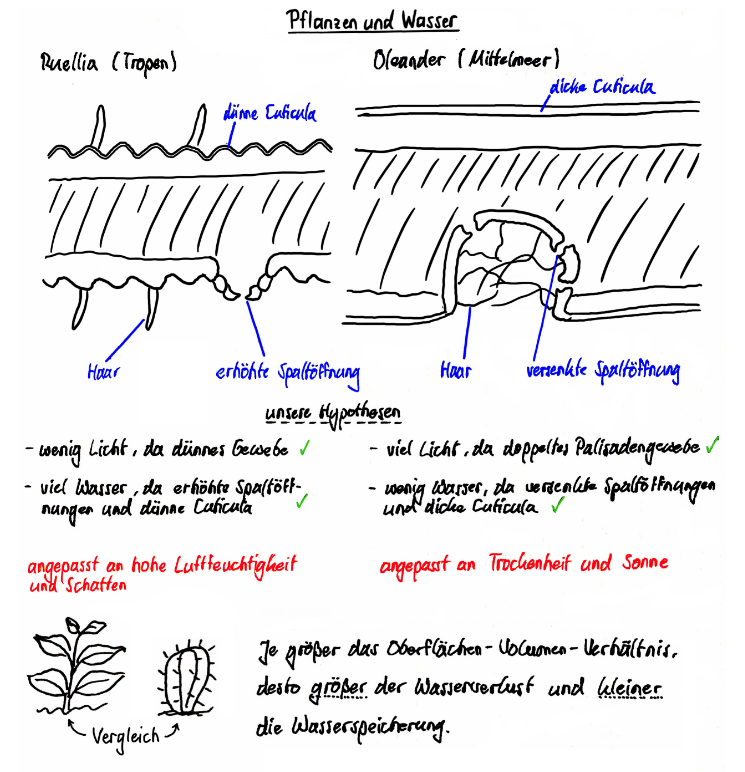 Pflanzen und Wasser
Ruellia (Tropen)
Oleander (Mittelmeer)
dünne Cuticula
dicke Cuticula
Haar
erhöhte Spaltöffnung
Haar
versenkte Spaltöffnung
unsere Hypothesen
- wenig Licht, da dünnes Gewebe ✓
- viel Wasser, da erhöhte Spaltöff-
nungen und dünne Cuticula ✓
- viel Licht, da doppeltes Palisadengewebe ✓
- wenig Wasser, da versenkte Spaltöffnungen
und dicke Cuticula ✓
angepasst an hohe Luftfeuchtigkeit
und Schatten
angepasst an Trockenheit und Sonne
Vergleich
Je größer das Oberflächen-Volumen-Verhältnis,
desto größer der Wasserverlust und kleiner
die Wasserspeicherung.